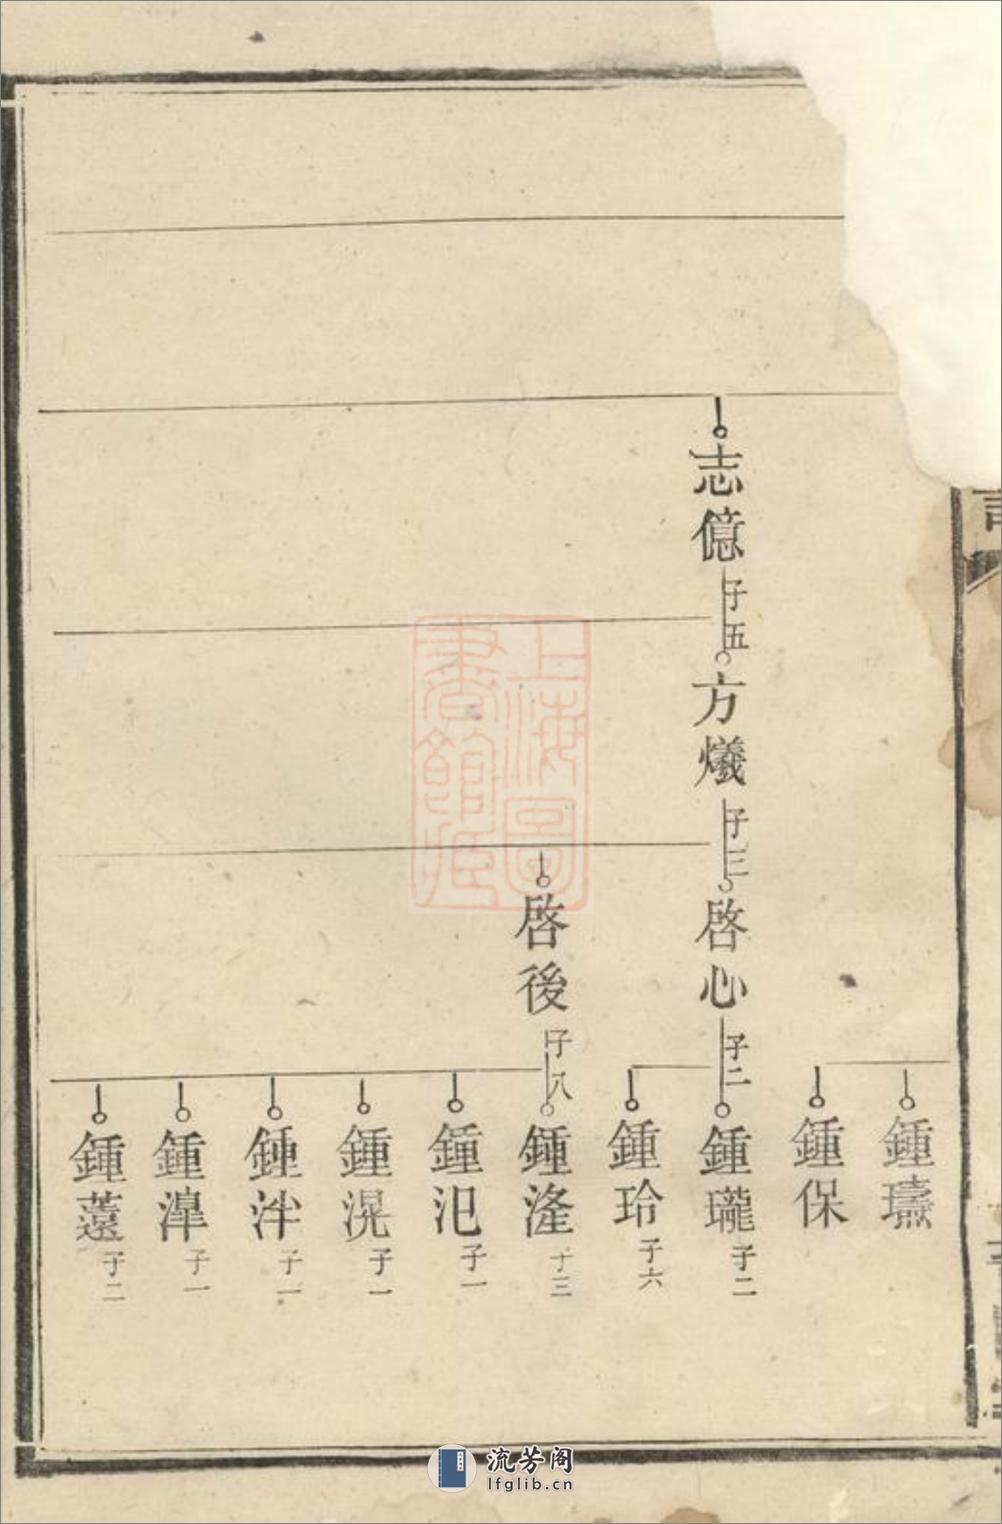 志億 子五
方爔 子三
啓心 子二
啓後 子八
鍾璹
鍾保
鍾瓏 子二
鍾玲 子六
鍾漋 子三
鍾汜 子一
鍾滉 子一
鍾泮 子一
鍾漳 子一
鍾薳 子二
上海圖
書館藏
流芳阁
lfglib.cn